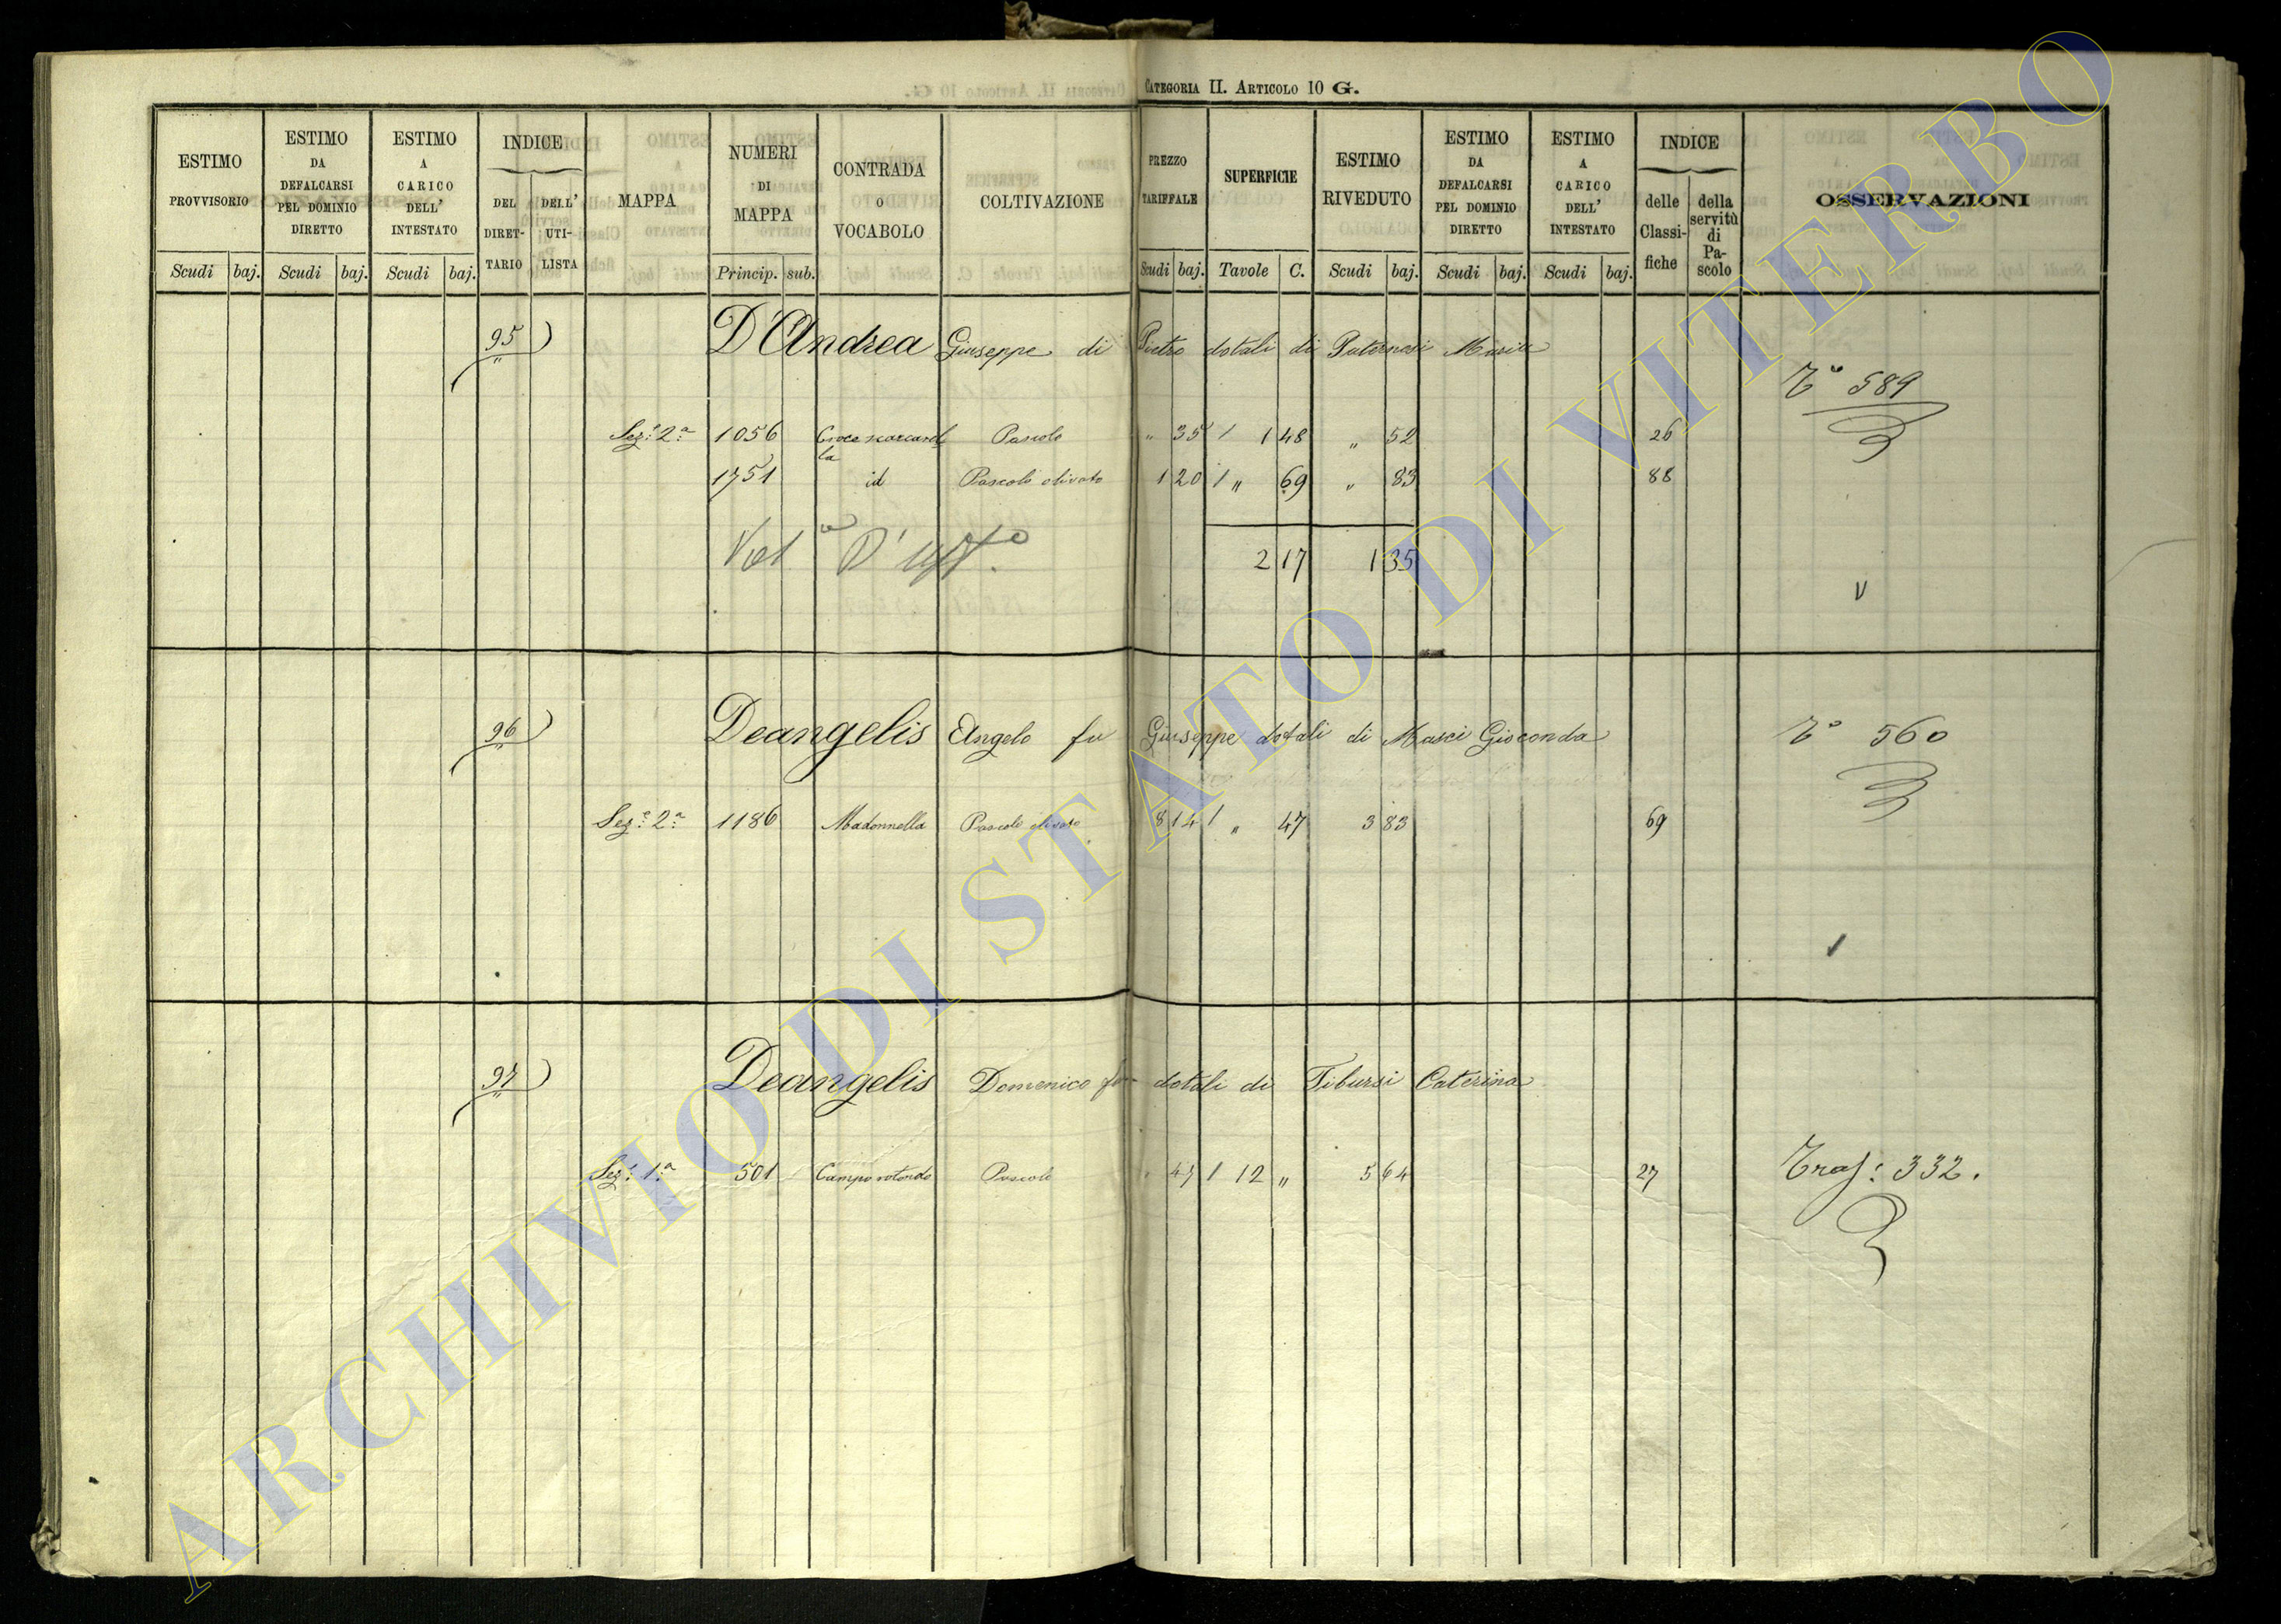 CATEGORIA II. ARTICOLO 10 G.
ESTIMO PROVVISORIO Scudi baj.
ESTIMO DA DEFALCARSI PEL DOMINIO DIRETTO Scudi baj.
ESTIMO A CARICO DELL' INTESTATO Scudi baj.
INDICE DEL DIRET-TARIO DELL' UTI-LISTA
MAPPA
NUMERI DI MAPPA Princip. sub.
CONTRADA O VOCABOLO
COLTIVAZIONE
PREZZO TARIFFALE Scudi baj.
SUPERFICIE Tavole C.
ESTIMO RIVEDUTO Scudi baj.
ESTIMO DA DEFALCARSI PEL DOMINIO DIRETTO Scudi baj.
ESTIMO A CARICO DELL' INTESTATO Scudi baj.
INDICE delle Classi-fiche della servitù di Pa-scolo
OSSERVAZIONI
95) D'Andrea Giuseppe di Pietro dotali di Paternesi Maria
Tº 589
Sezº 2ª 1056 Pascolo " 35 1 1 48 " 52 26
1751 id Pascolo olivato 1 20 1 " 69 " 83 88
2 17 1 35
96) Deangelis Angelo fu Giuseppe dotali di Masci Gioconda Tº 560
Sezº 2ª 1186 Madonnella Pascolo olivato 8 14 1 " 47 3 83 69
97) Deangelis Domenico fu dotali di Tibursi Caterina
Sezº 1ª 501 Campo rotondo Pascolo " 47 1 12 " 5 64 27 Traf: 332.
ARCHIVIO DI STATO DI VITERBO